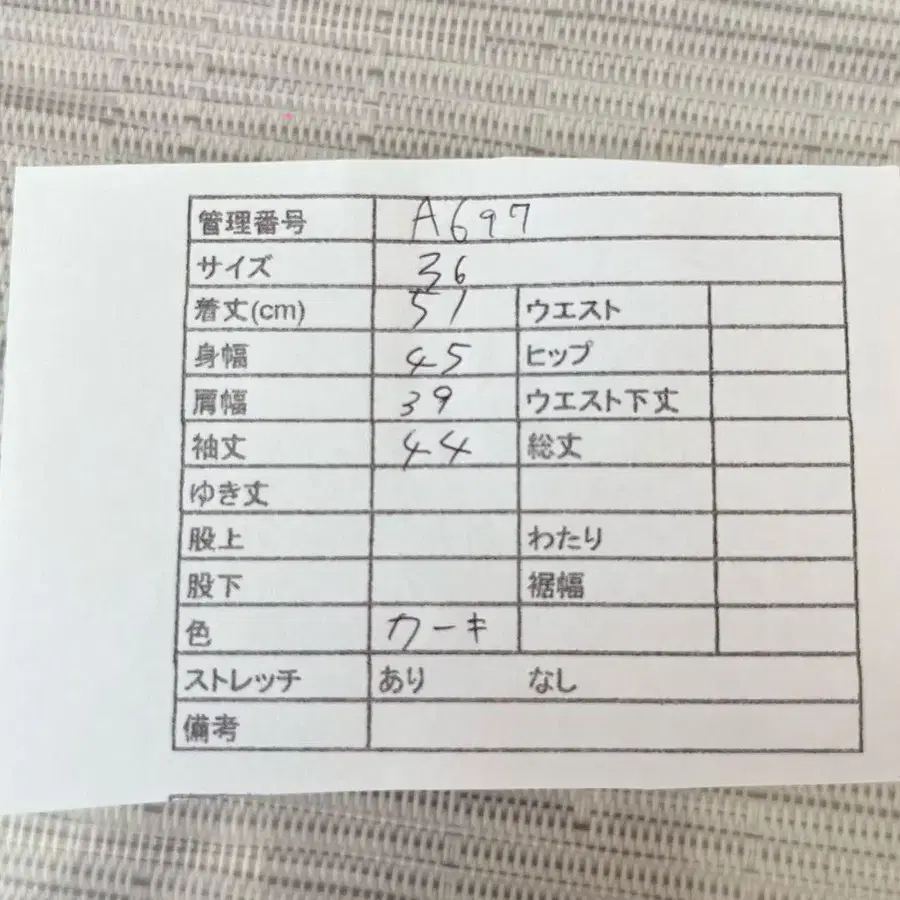 管理番号 A697
サイズ 36
着丈(cm) 51 ウエスト
身幅 45 ヒップ
肩幅 39 ウエスト下丈
袖丈 44 総丈
ゆき丈
股上 わたり
股下 裾幅
色 カーキ
ストレッチ あり なし
備考